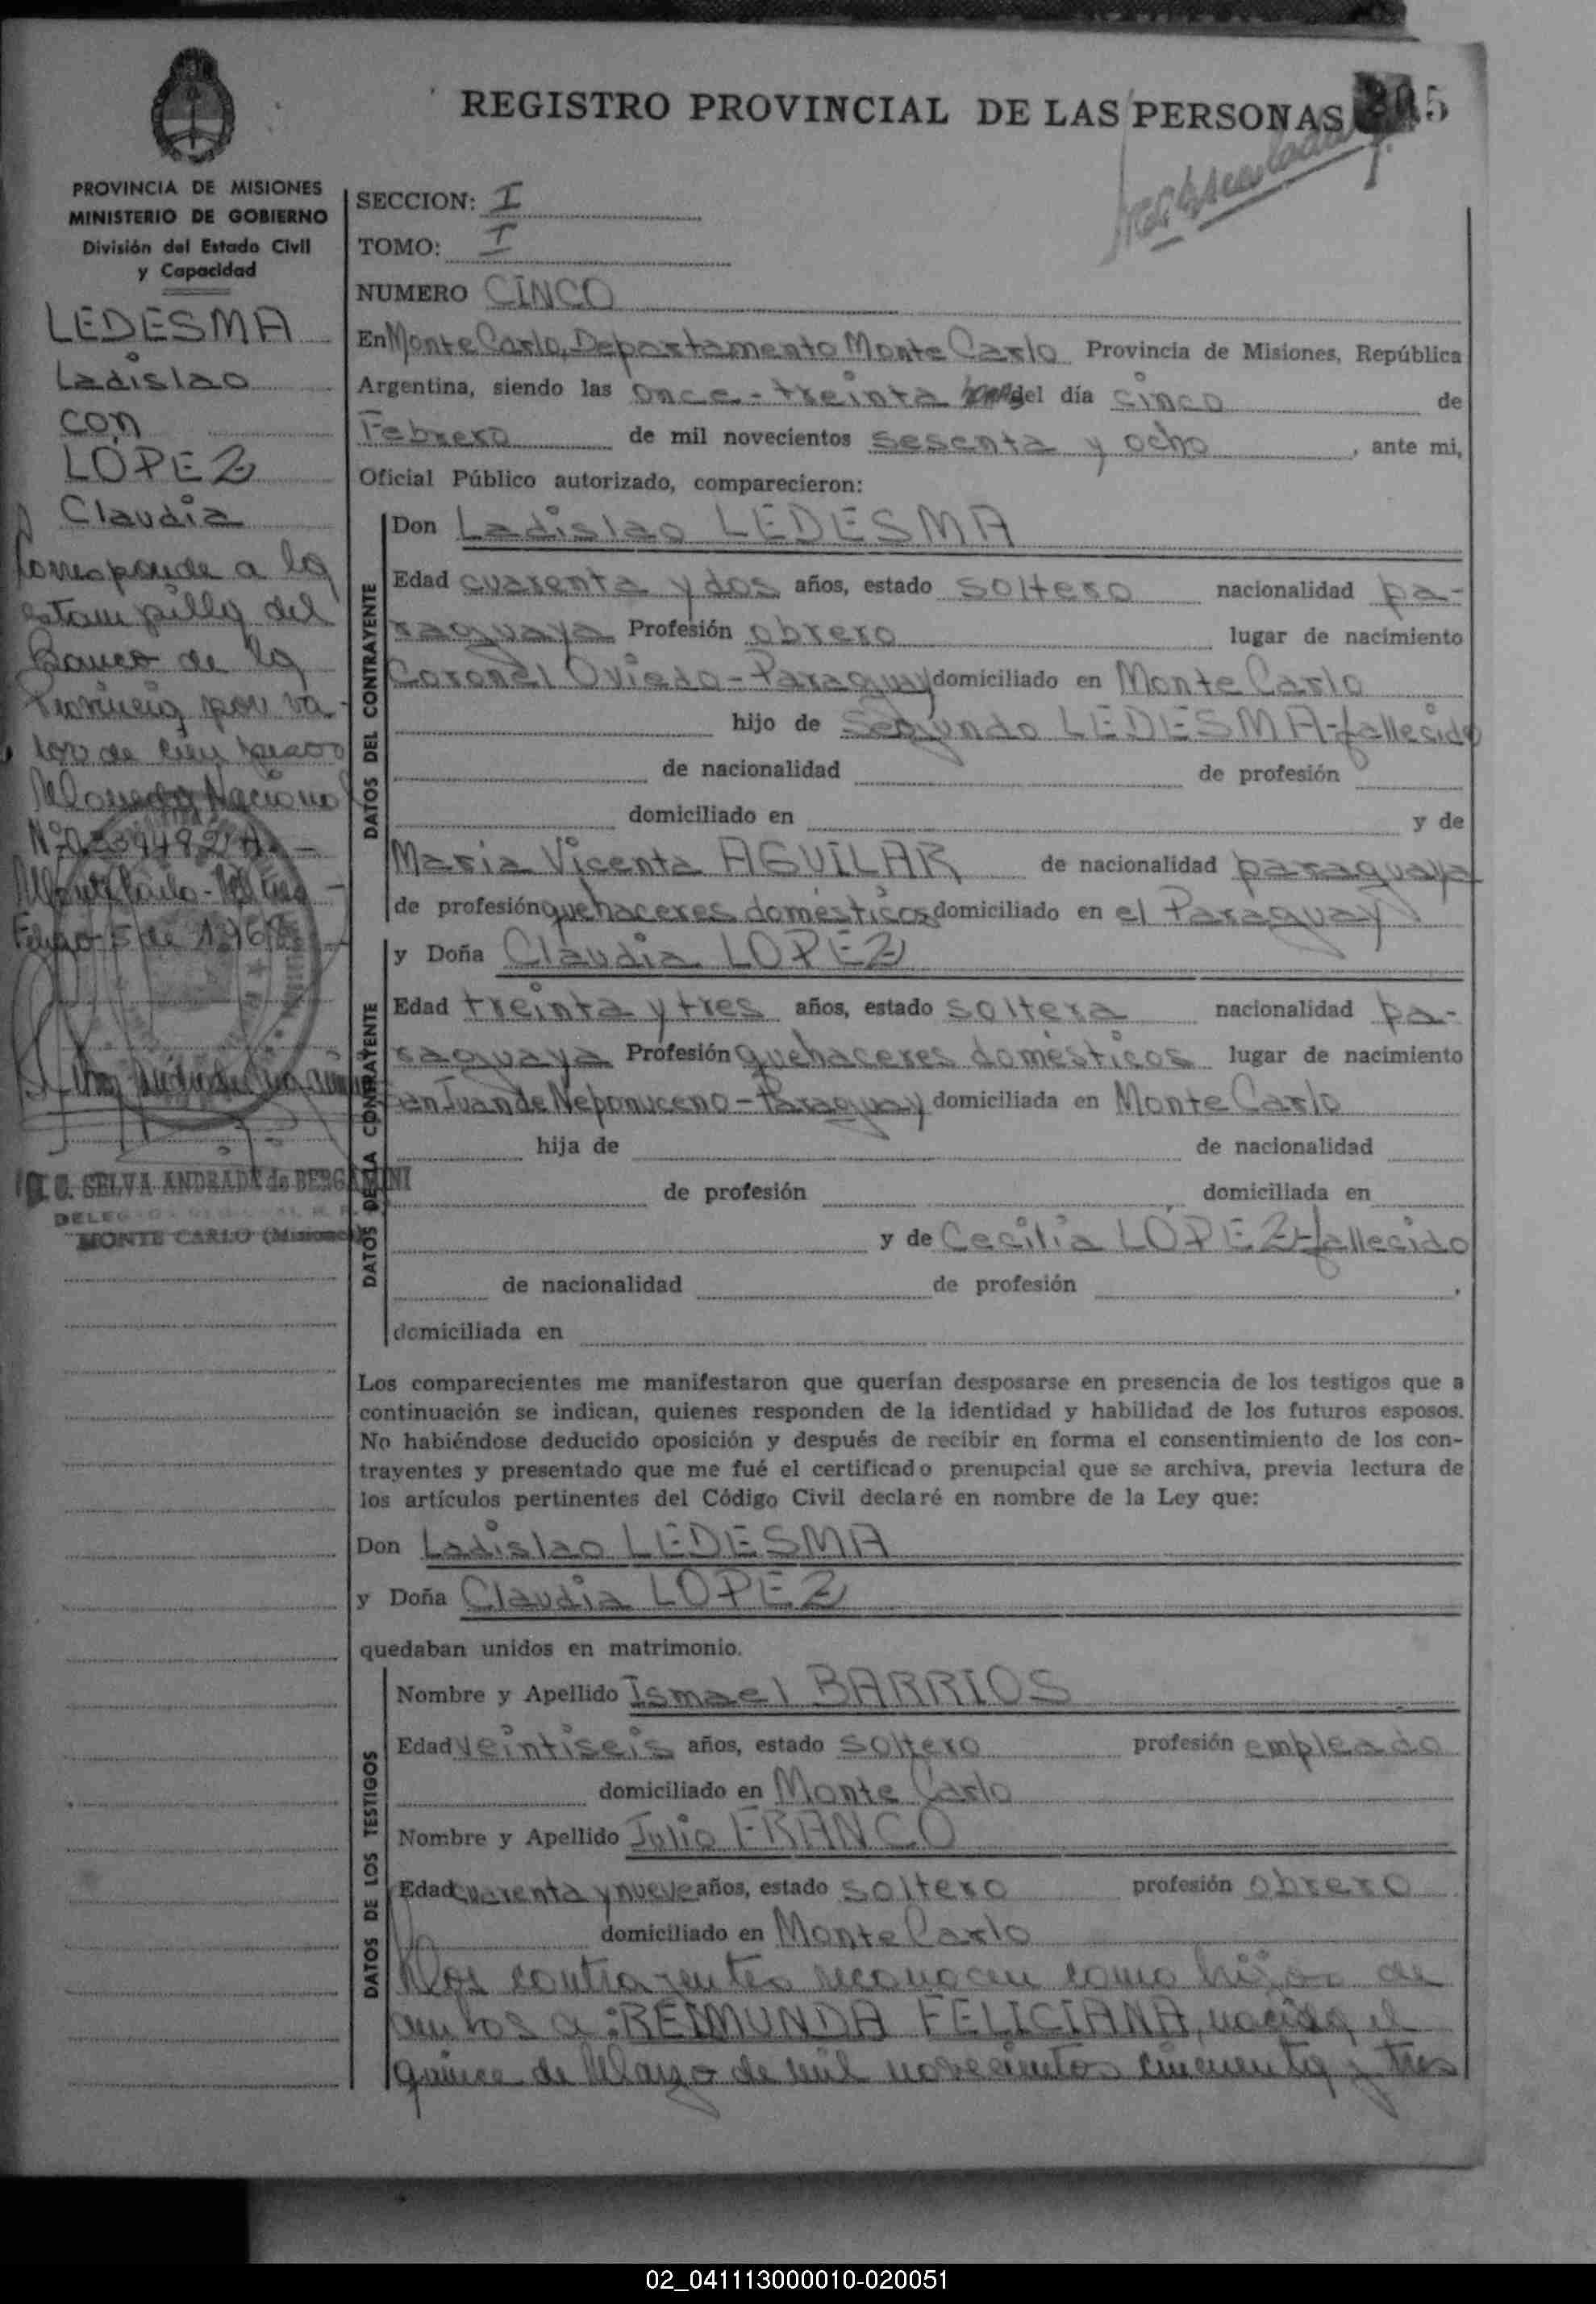 REGISTRO PROVINCIAL DE LAS PERSONAS 5
PROVINCIA DE MISIONES
MINISTERIO DE GOBIERNO
División del Estado Civil
y Capacidad
LEDESMA
Ladislao
con
LÓPEZ
Claudia
Corresponde a la
estampilla del
Banco de la
Provincia por va-
lor de cien pesos
Moneda Nacional
Monte Carlo -
5 de 1968
SELVA ANDRADA de BERGAMINI
MONTE CARLO (Misiones)
SECCION: I
TOMO: I
NUMERO CINCO
En Monte Carlo, Departamento Monte Carlo Provincia de Misiones, República
Argentina, siendo las once - treinta del día cinco de
Febrero de mil novecientos sesenta y ocho, ante mi,
Oficial Público autorizado, comparecieron:
DATOS DEL CONTRAYENTE
Don Ladislao LEDESMA
Edad cuarenta y dos años, estado soltero nacionalidad pa-
raguaya Profesión obrero lugar de nacimiento
Coronel Oviedo - Paraguay domiciliado en Monte Carlo
hijo de Segundo LEDESMA - fallecido
de nacionalidad de profesión
domiciliado en y de
Maria Vicenta AGUILAR de nacionalidad paraguaya
de profesión quehaceres domésticos domiciliado en el Paraguay
DATOS DE LA CONTRAYENTE
y Doña Claudia LOPEZ
Edad treinta y tres años, estado soltera nacionalidad pa-
raguaya Profesión quehaceres domésticos lugar de nacimiento
San Juan de Neponuceno - Paraguay domiciliada en Monte Carlo
hija de de nacionalidad
de profesión domiciliada en
y de Cecilia LÓPEZ - fallecido
de nacionalidad de profesión ,
domiciliada en
Los comparecientes me manifestaron que querían desposarse en presencia de los testigos que a
continuación se indican, quienes responden de la identidad y habilidad de los futuros esposos.
No habiéndose deducido oposición y después de recibir en forma el consentimiento de los con-
trayentes y presentado que me fué el certificado prenupcial que se archiva, previa lectura de
los artículos pertinentes del Código Civil declaré en nombre de la Ley que:
Don Ladislao LEDESMA
y Doña Claudia LOPEZ
quedaban unidos en matrimonio.
DATOS DE LOS TESTIGOS
Nombre y Apellido Ismael BARRIOS
Edad veintiseis años, estado soltero profesión empleado
domiciliado en Monte Carlo
Nombre y Apellido Julio FRANCO
Edad cuarenta y nueve años, estado soltero profesión obrero
domiciliado en Monte Carlo
Los contrayentes reconocen como hijos de
ambos a: REIMUNDA FELICIANA, nacida el
quince de Marzo de mil novecientos cincuenta y tres
02_041113000010-020051